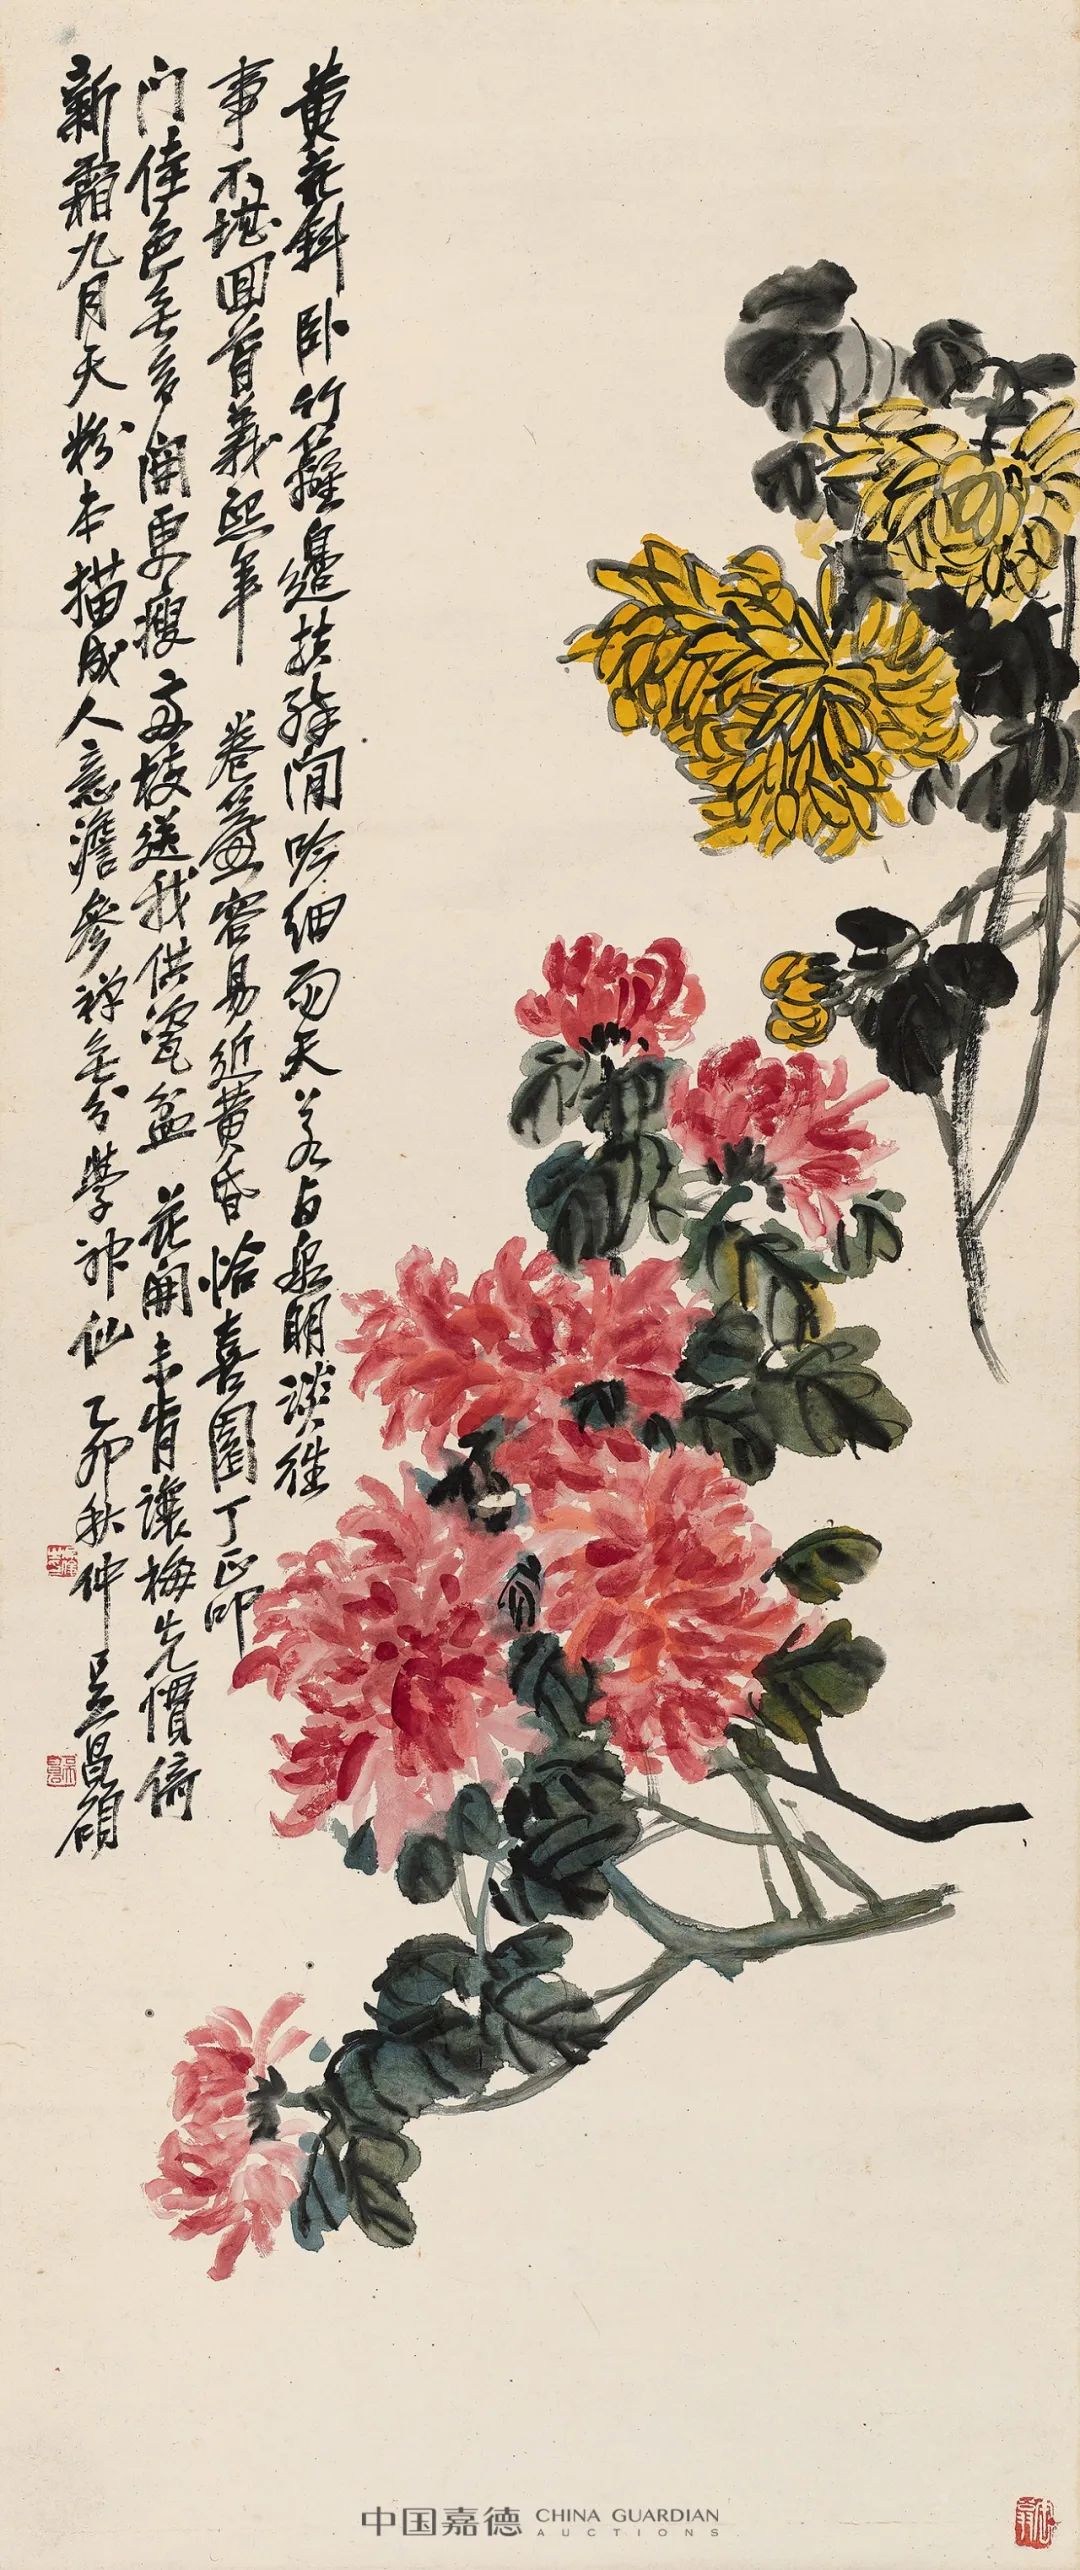 黄花斜卧竹篱边扶醉闲吟细雨天若与泉明谈往
事不堪回首义熙年 卷帘容易近黄昏恰喜园丁正叩
门佳色无多开更瘦 高枝送我供瓷盆 花开未肯让梅先惯傍
新霜九月天粉本描成人意澹参禅无分学神仙 乙卯秋仲 吴昌硕
中国嘉德 CHINA GUARDIAN
AUCTIONS